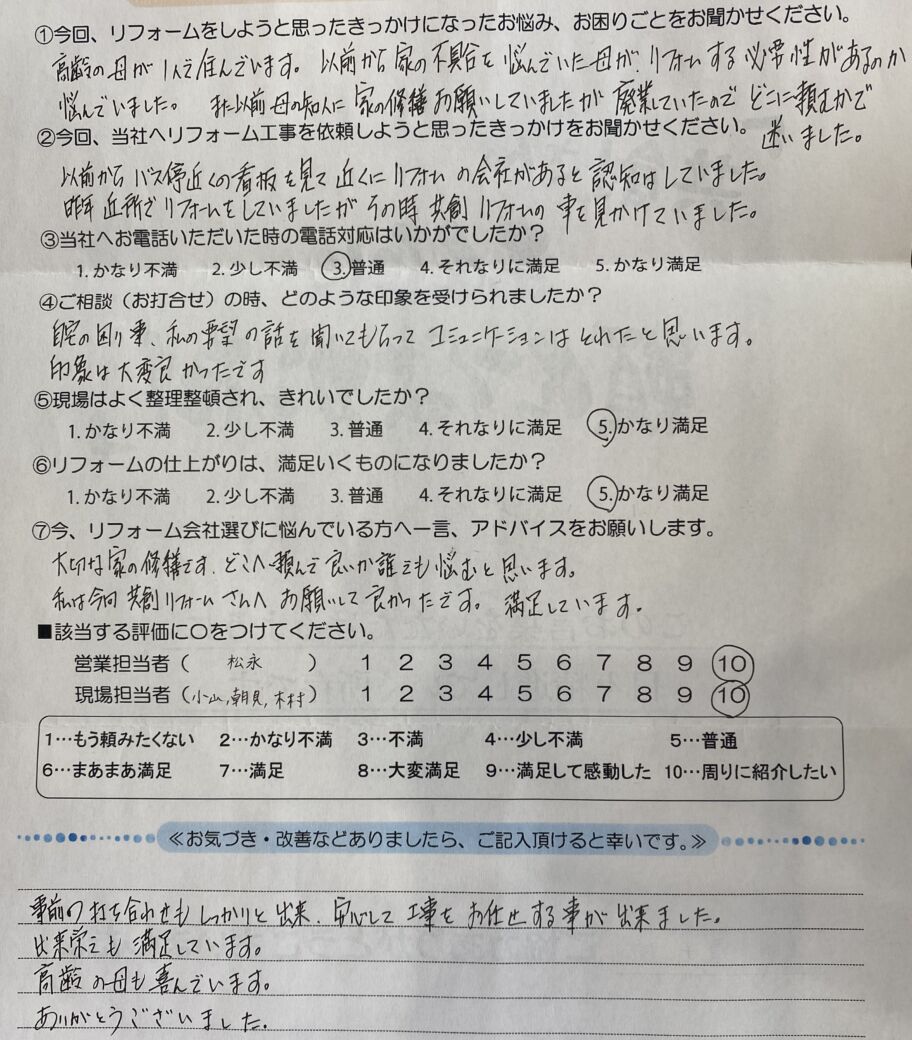 ①今回、リフォームをしようと思ったきっかけになったお悩み、お困りごとをお聞かせください。
高齢の母が1人で住んでいます。以前から家の不具合を悩んでいた母が、リフォームする必要性があるのか
悩んでいました。また以前母の知人に家の修繕お願いしていましたが廃業していたのでどこに頼むかで
迷いました。
②今回、当社へリフォーム工事を依頼しようと思ったきっかけをお聞かせください。
以前からバス停近くの看板を見て近くにリフォームの会社があると認知はしていました。
昨年近所でリフォームをしていましたがその時共創リフォームの車を見かけていました。
③当社へお電話いただいた時の電話対応はいかがでしたか？
1.かなり不満 2.少し不満 3.普通 4.それなりに満足 5.かなり満足
④ご相談（お打合せ）の時、どのような印象を受けられましたか？
自宅の困り事、私の要望の話を聞いてもらってコミュニケーションはとれたと思います。
印象は大変良かったです
⑤現場はよく整理整頓され、きれいでしたか？
1.かなり不満 2.少し不満 3.普通 4.それなりに満足 5.かなり満足
⑥リフォームの仕上がりは、満足いくものになりましたか？
1.かなり不満 2.少し不満 3.普通 4.それなりに満足 5.かなり満足
⑦今、リフォーム会社選びに悩んでいる方へ一言、アドバイスをお願いします。
大切な家の修繕です、どこへ頼んで良いか誰でも悩むと思います。
私は今回共創リフォームさんへお願いして良かったです。満足しています。
■該当する評価に〇をつけてください。
営業担当者（ 松永 ） 1 2 3 4 5 6 7 8 9 10
現場担当者（小山,朝見,木村） 1 2 3 4 5 6 7 8 9 10
1…もう頼みたくない 2…かなり不満 3…不満 4…少し不満 5…普通
6…まあまあ満足 7…満足 8…大変満足 9…満足して感動した 10…周りに紹介したい
≪お気づき・改善などありましたら、ご記入頂けると幸いです。≫
事前の打ち合わせもしっかりと出来、安心して工事をお任せする事が出来ました。
出来栄えも満足しています。
高齢の母も喜んでいます。
ありがとうございました.